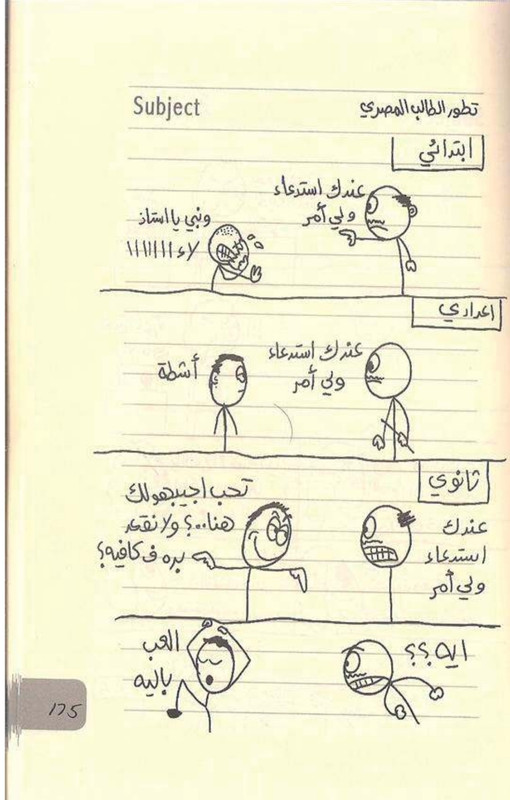 Subject
تطور الطالب المصري
ابتدائي
عندك استدعاء
ولي أمر
ونبي يا استاذ
لاء ااااااا
اعدادي
عندك استدعاء
ولي أمر
أشطة
ثانوي
عندك
استدعاء
ولي أمر
تحب اجيبهولك
هنا..؟ ولا نقعد
بره ف كافيه؟
ايه؟؟
العب
باليه
175